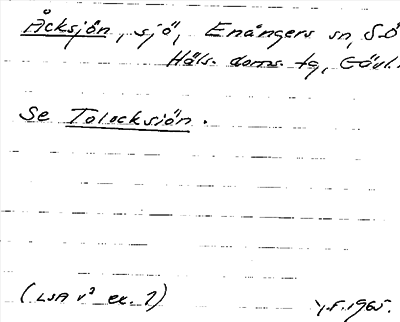 Åcksjön, sjö, Enångers sn, S.Ö
Häls. doms. tg, Gävl.
Se Tolocksjön.
(LSA v³ ex. 1)
Y.F. 1965.